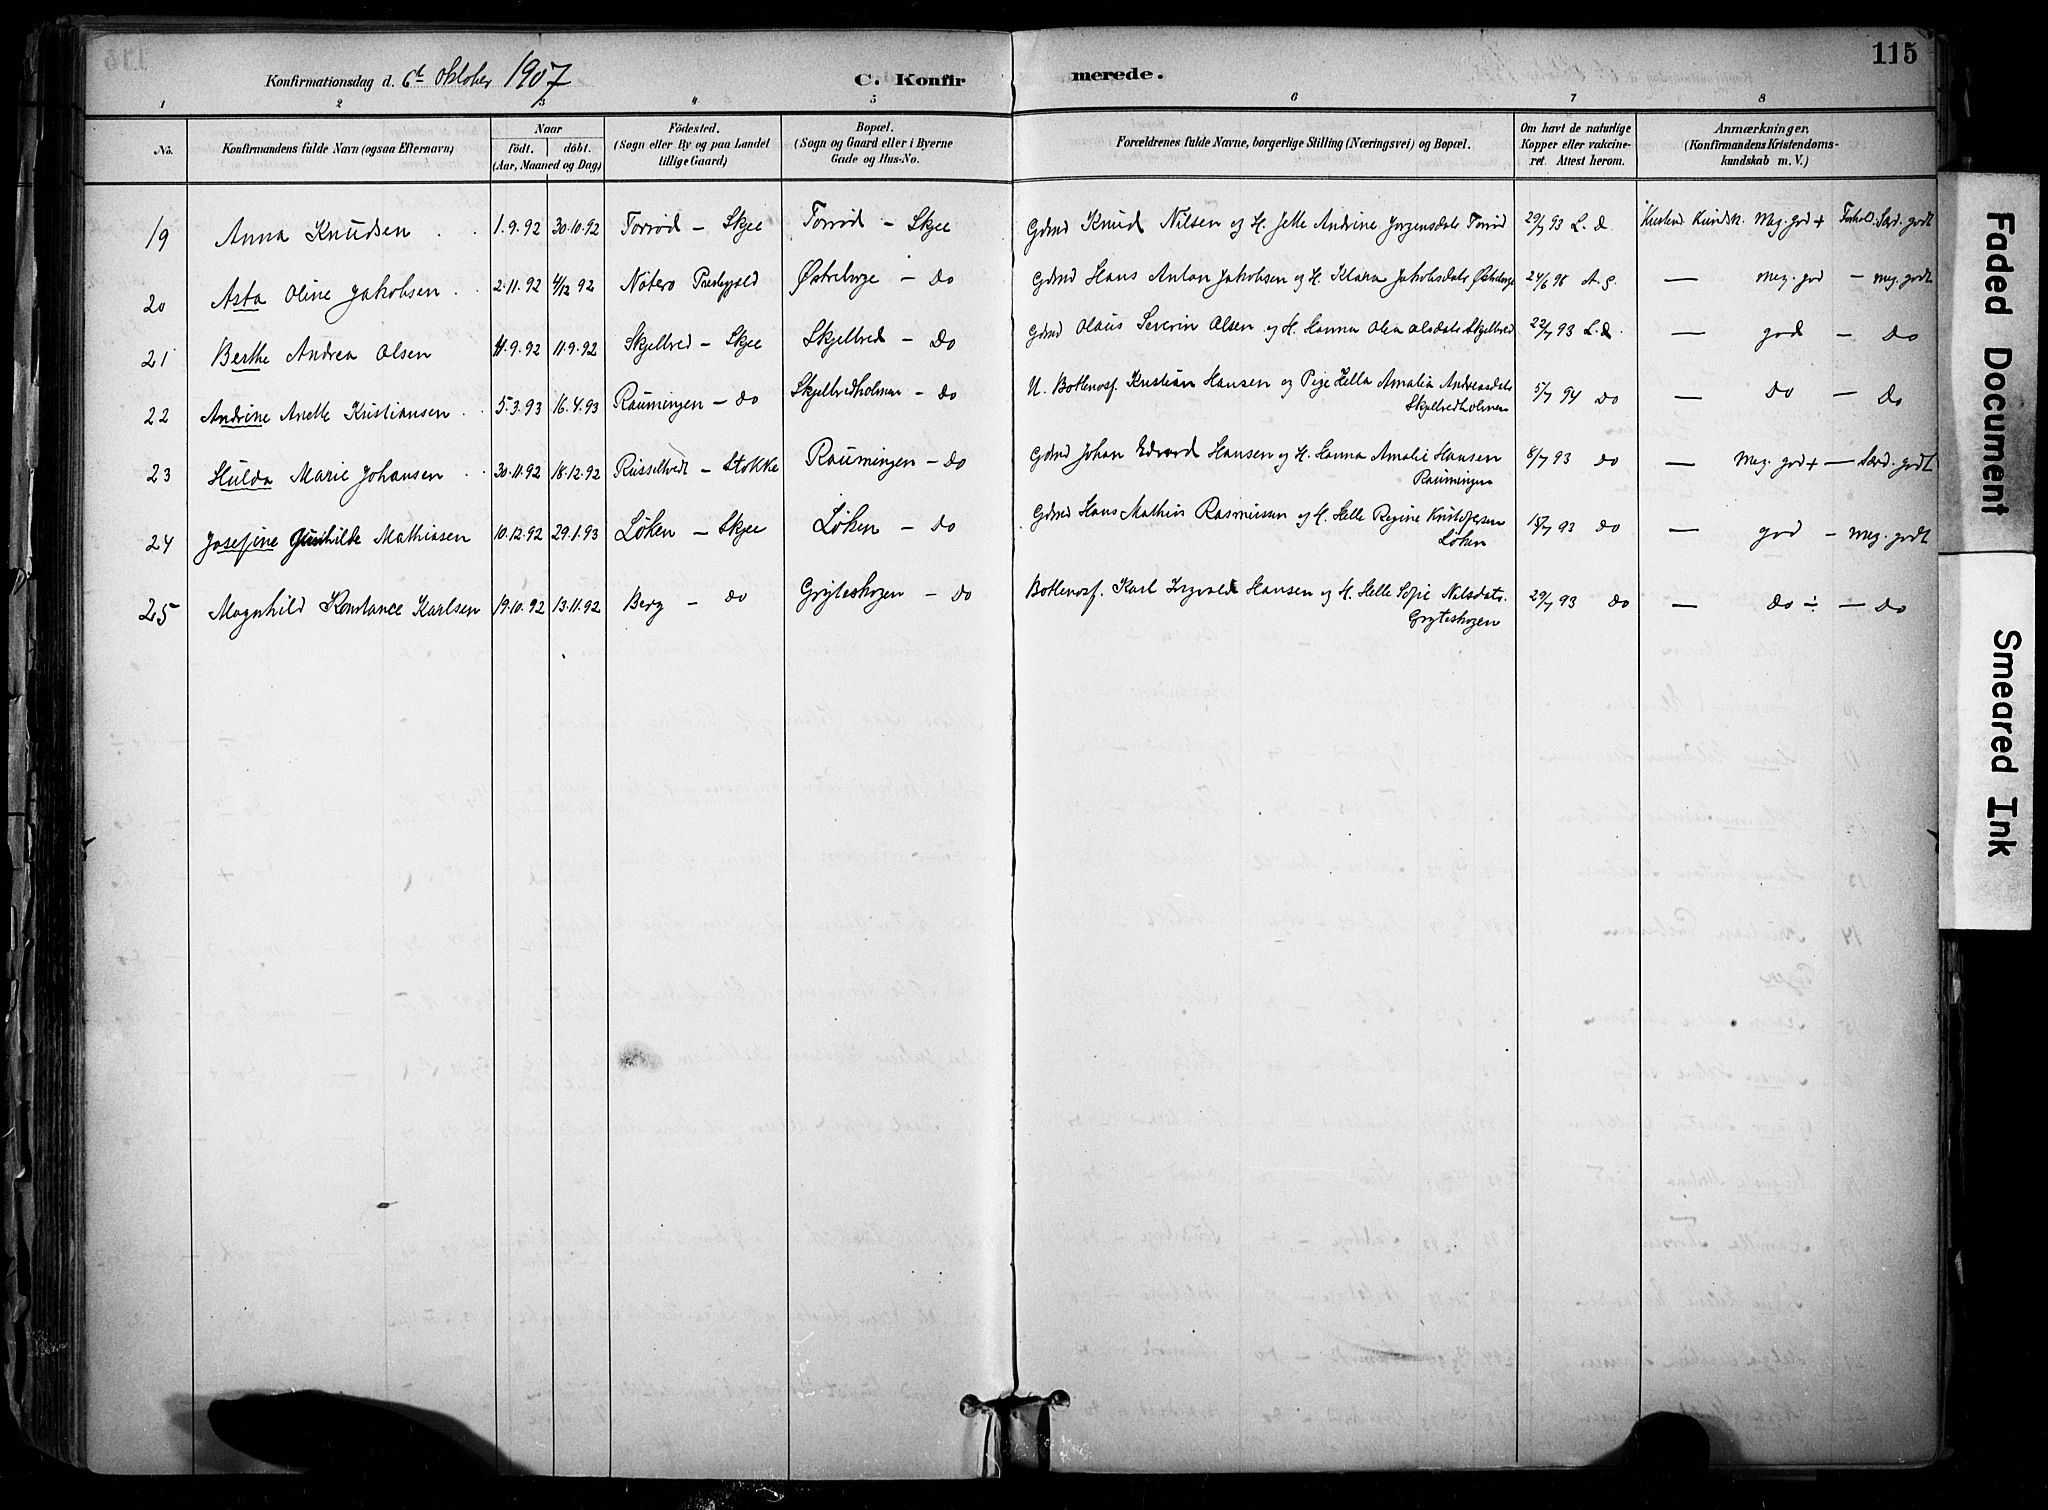 115
Konfirmationsdag d. 6t Oktober 1907 C. Konfirmerede.
1 2 3 4 5 6 7 8
No. Konfirmandens fulde Navn (ogsaa Efternavn) Naar født. døbt. (Aar, Maaned og Dag) Fødested. (Sogn eller By og paa Landet tillige Gaard) Bopæl. (Sogn og Gaard eller i Byerne Gade og Hus-No. Forældrenes fulde Navne, borgerlige Stilling (Næringsvei) og Bopæl. Om havt de naturlige Kopper eller vakcineret. Attest herom. Anmærkninger. (Konfirmandens Kristendomskundskab m. V.)
19 Anna Knudsen 1.9.92 30.10.92 Torrød – Skjee Torrød – Skjee Gdmd Knud Nilsen og H. Jette Andrine Jørgensdatr Torrød 29/7 93 L.d Kristend. Kundsk. Meg. god + Forhold. Særd. godt
20 Asta Oline Jakobsen 2.11.92 4/12 92 Nøterø Østreborge – Do Gdmd Hans Anton Jakobsen og H. Klara Jakobsdatr 24/6 98 A.S. — Meg. god – meg. godt
21 Berthe Andrea Olsen 4.9.92 11.9.92 Skjelbred – Skjee Skjelbred – Do Gdmd Olaus Severin Olsen og H. Hanna Olea Olsdatr Skjelbred 22/7 93 L.d. — god – Do
22 Andrine Anette Kristiansen 5.3.93 16.4.93 Raumingen – do Skjelbredholmen – Do U. Bottenosf. Kristian Hansen og Pige Hella Amalia Andreasdatr
Skjelbredholmen 5/7 94 do — Do – Do
23 Hulda Marie Johansen 30.11.92 18.12.92 Russeltvedt – Stokke Raumingen – Do Gdmd Johan Edvard Hansen og H. Hanna Amalie Hansen
Raumingen 8/7 93 do — Meg. god + — Særd. godt
24 Josefine Gunhilde Mathiasen 10.12.92 29.1.93 Løken – Skjee Løken – Do Gdmd Hans Mathias Rasmussen og H. Helle Regine Kristofersen
Løken 15/7 93 do — god – meg. godt
25 Magnhild Konstance Karlsen 19.10.92 13.11.92 Berg – do Gryteskogen – Do Bottenosf. Karl Ingvald Hansen og H. Helle Sofie Nilsdatr.
Gryteskogen 29/7 93 do — Do ÷ — Do
Faded Document
Smeared Ink